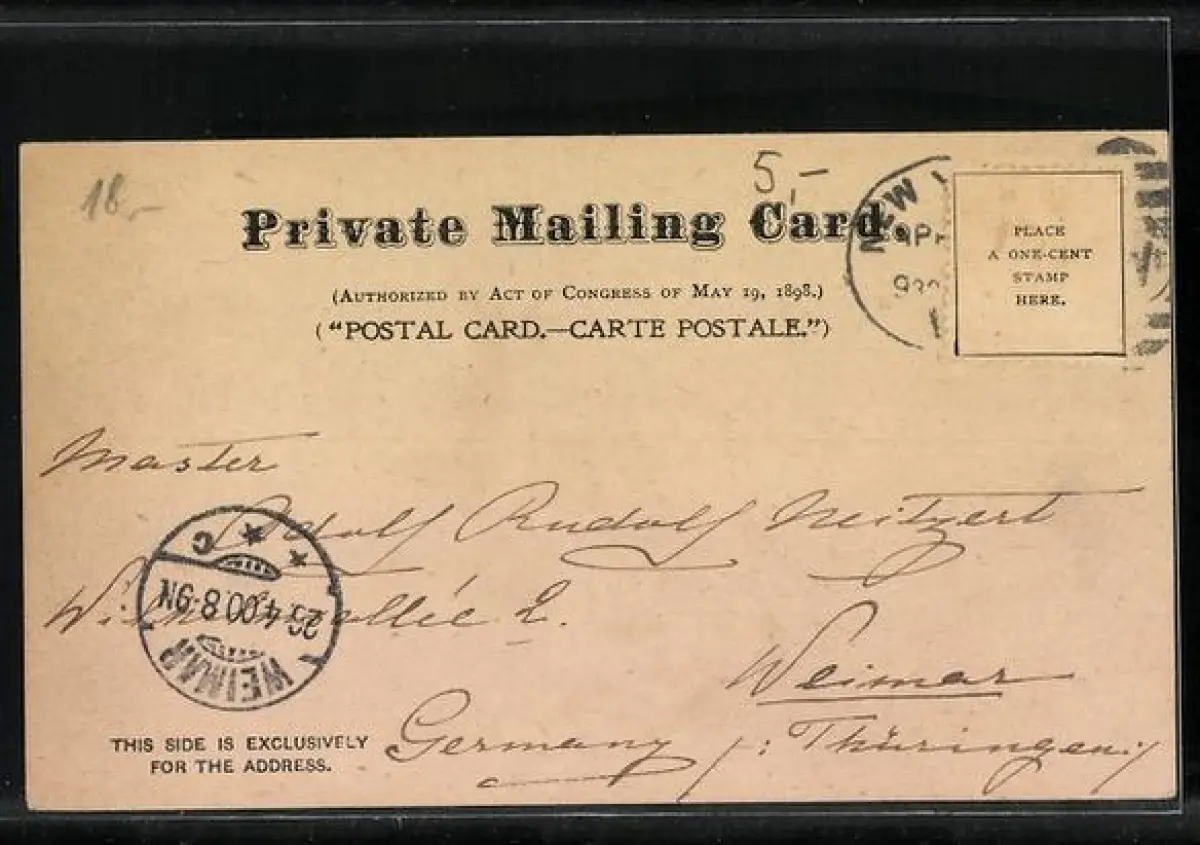 18,-
5,-
Private Mailing Card.
(AUTHORIZED BY ACT OF CONGRESS OF MAY 19, 1898.)
("POSTAL CARD.—CARTE POSTALE.")
NEW
AP
PLACE
A ONE-CENT
STAMP
HERE.
Master
Adolf Rudolf Neitzert
2.
Weimar
Germany /: Thüringen :/
WEIMAR
26.4.00.8-9N
C
THIS SIDE IS EXCLUSIVELY
FOR THE ADDRESS.